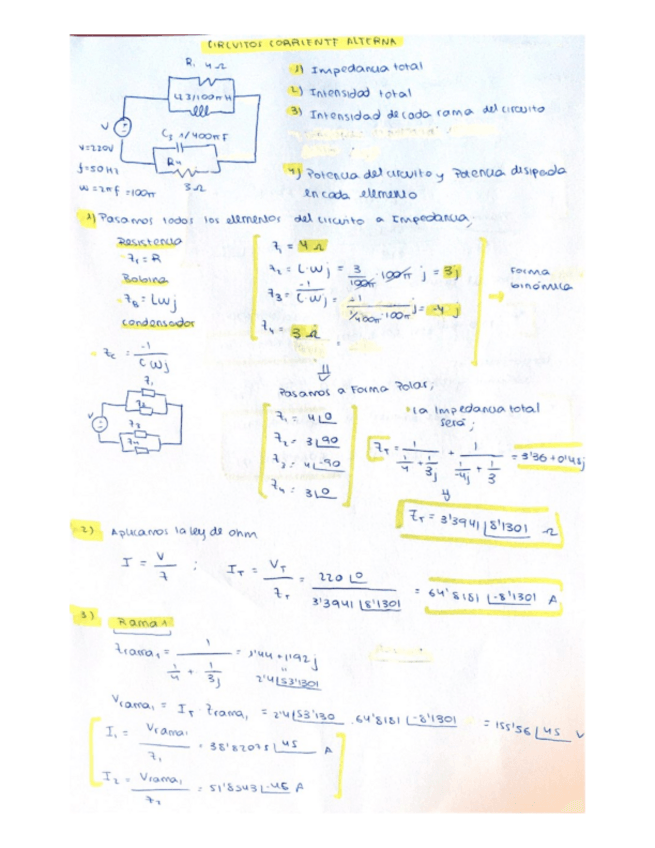 CIRCUITOS CORRIENTE ALTERNA
R1 4Ω
L2 3/100π H
C3 1/400π F
R4
3Ω
V
V=220V
f=50Hz
W=2πf=100π
1) Impedancia total
2) Intensidad total
3) Intensidad de cada rama del circuito
4) Potencia del circuito y Potencia disipada
en cada elemento
1) Pasamos todos los elementos del circuito a Impedancia;
Resistencia
Z1 = R
Bobina
ZB = LWj
Condensador
Zc = -1 / CWj
Z1 = 4Ω
Z2 = L·Wj = 3/100π · 100π j = 3j
Z3 = -1/C·Wj = -1 / 1/400π · 100π j = -4j
Z4 = 3Ω
→ Forma
binómica
Z1
Z2
Z3
Z4
V
Pasamos a Forma Polar;
Z1 = 4|0
Z2 = 3|90
Z3 = 4|-90
Z4 = 3|0
La Impedancia total
será;
ZT = 1 / (1/4 + 1/3j) + 1 / (1/-4j + 1/3) = 3'36+0'48j
ZT = 3'3941|8'1301 Ω
2) Aplicamos la ley de ohm
I = V/Z ; IT = VT/ZT = 220|0 / 3'3941|8'1301 = 64'8181|-8'1301 A
3) Rama 1
Zrama1 = 1 / (1/4 + 1/3j) = 1'44+1'92j
2'4|53'1301
Vrama1 = IT · Zrama1 = 2'4|53'130 . 64'8181|-8'1301 = 155'56|45 V
I1 = Vrama1/Z1 = 38'82075|45 A
I2 = Vrama1/Z2 = 51'8543|-45 A